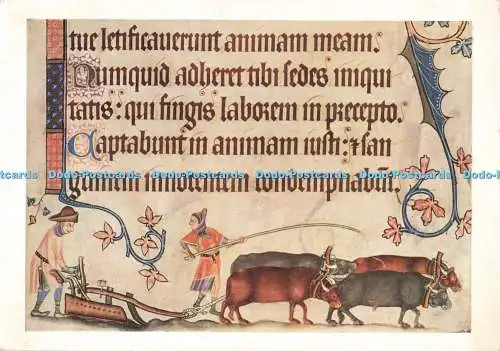 tue letificauerunt animam meam.
Numquid adheret tibi sedes iniqui
tatis: qui fingis laborem in precepto.
Captabunt in animam iusti: ⁊ san
guinem innocentem condempnabūt.
Postcards Do Postcards Do Postcards Do Postcards Do Postcards Do Postcards